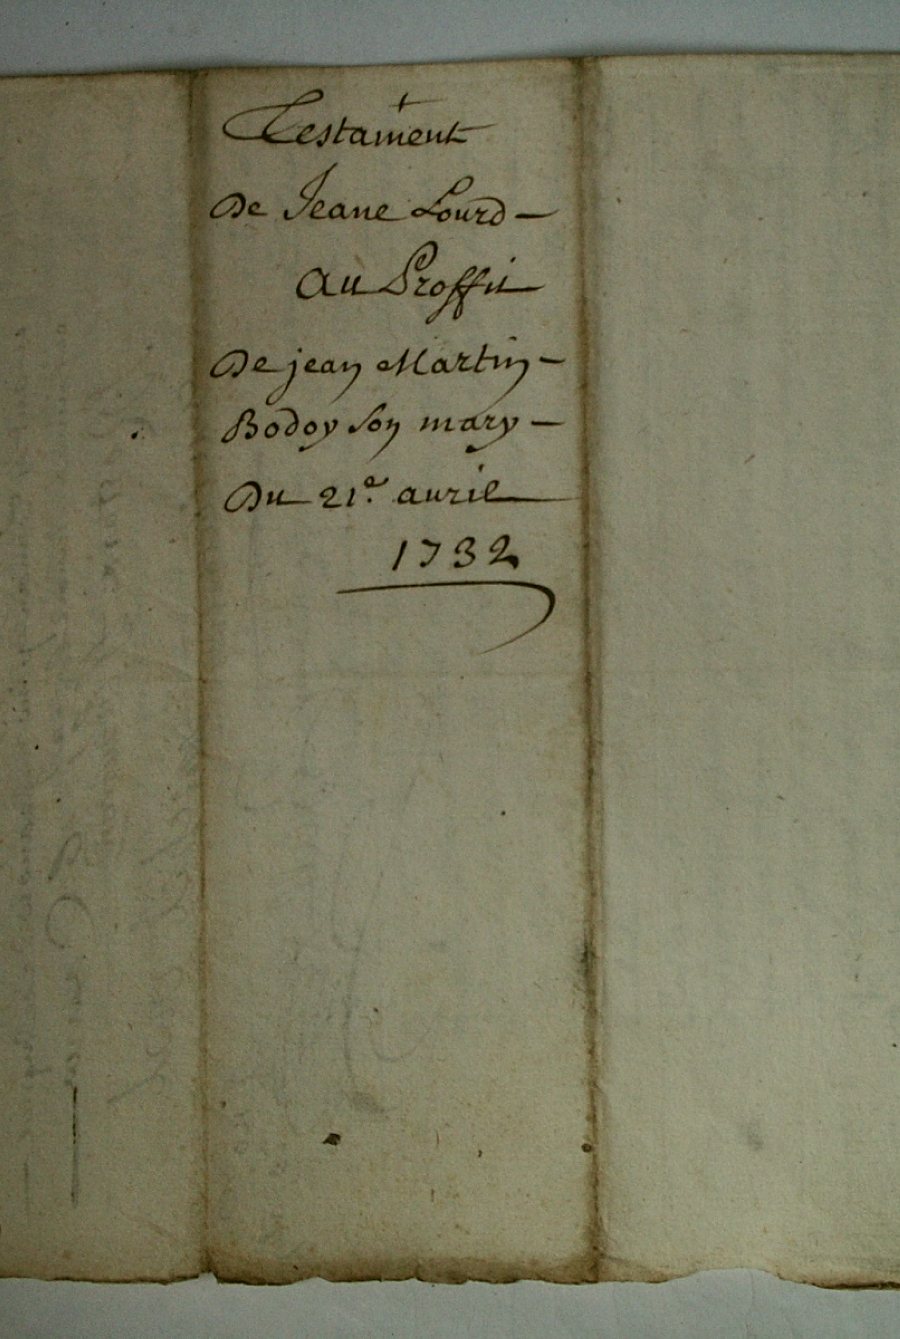 Testament
De Jeane Lourd -
Au Proffit
De jean Martin -
Bodoy son mary -
Du 21e. auril
1732